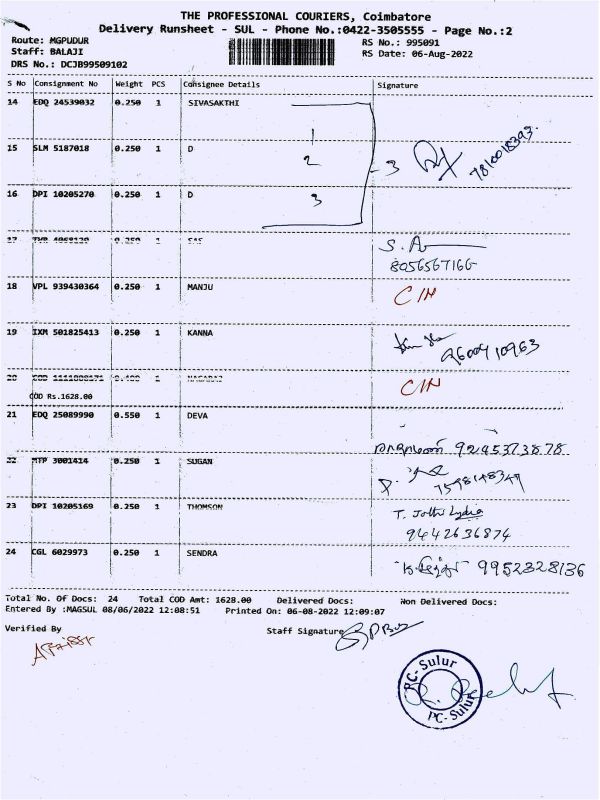 THE PROFESSIONAL COURIERS, Coimbatore
Delivery Runsheet - SUL - Phone No.:0422-3505555 - Page No.:2
Route: MGPUDUR
RS No.: 995091
Staff: BALAJI
RS Date: 06-Aug-2022
DRS No.: DCJB99509102
S No Consignment No Weight PCS Consignee Details Signature
14 EDQ 24539032 0.250 1 SIVASAKTHI
1
15 SLM 5187018 0.250 1 D
2 3 7810018393
16 DPI 10205270 0.250 1 D
3
17 0.250 1 SAS
8056567166
18 VPL 939430364 0.250 1 MANJU C/N
19 IXM 501825413 0.250 1 KANNA
9600410963
20 1 C/N
COD Rs.1628.00
21 EDQ 25089990 0.550 1 DEVA
9245373878
22 MTP 3001414 0.250 1 SUGAN
7598148347
23 DPI 10205169 0.250 1 THOMSON T. Jothi Lydia
9442636874
24 CGL 6029973 0.250 1 SENDRA 9952328136
Total No. Of Docs: 24 Total COD Amt: 1628.00 Delivered Docs: Non Delivered Docs:
Entered By :MAGSUL 08/06/2022 12:08:51 Printed On: 06-08-2022 12:09:07
Verified By Staff Signature
PC-Sulur
PC-Sulur